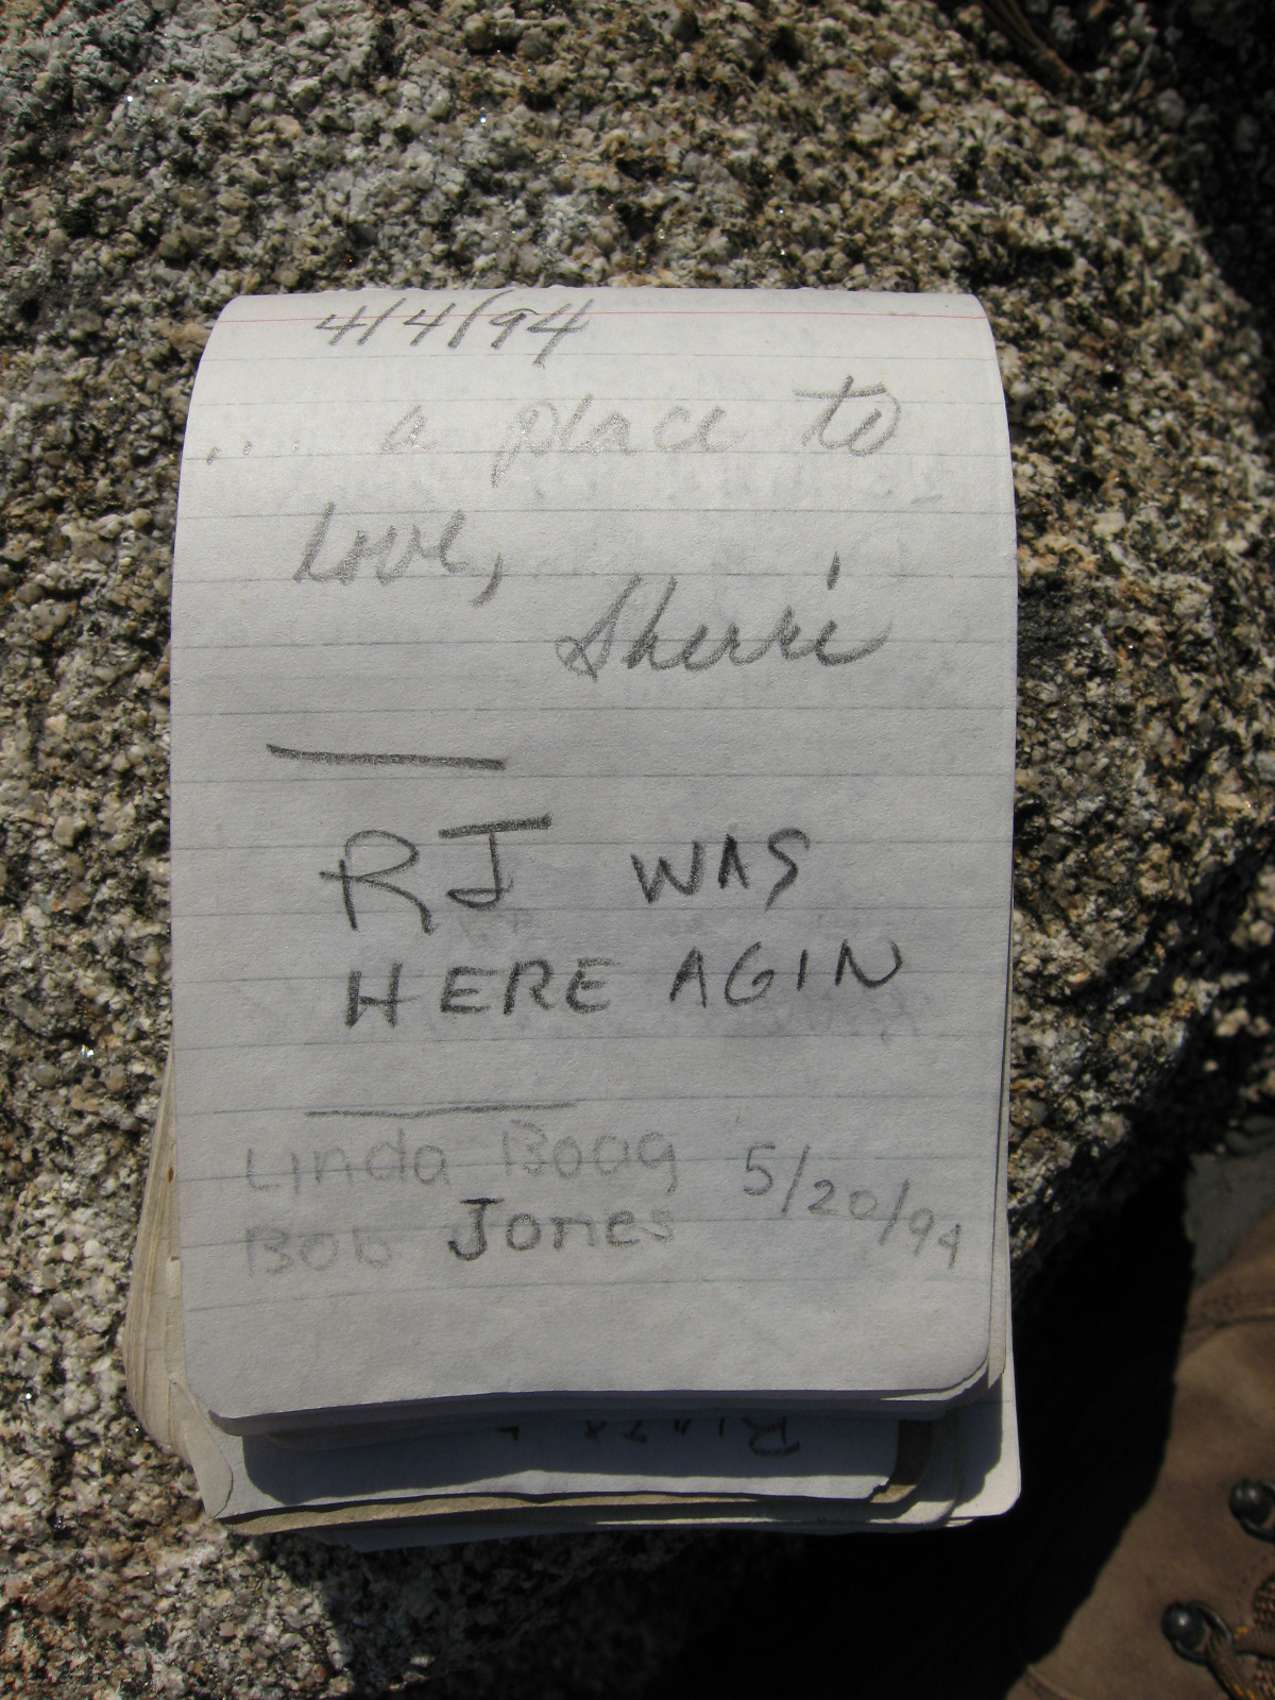 4/4/94
... a place to
love,
Sherrie
RJ WAS
HERE AGIN
Linda Boog 5/20/94
Bob Jones